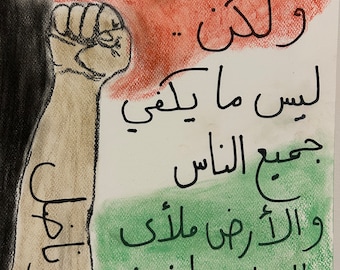 ولكن ..
ليس ما يكفي
جميع الناس
والأرض ملأى
ناضل